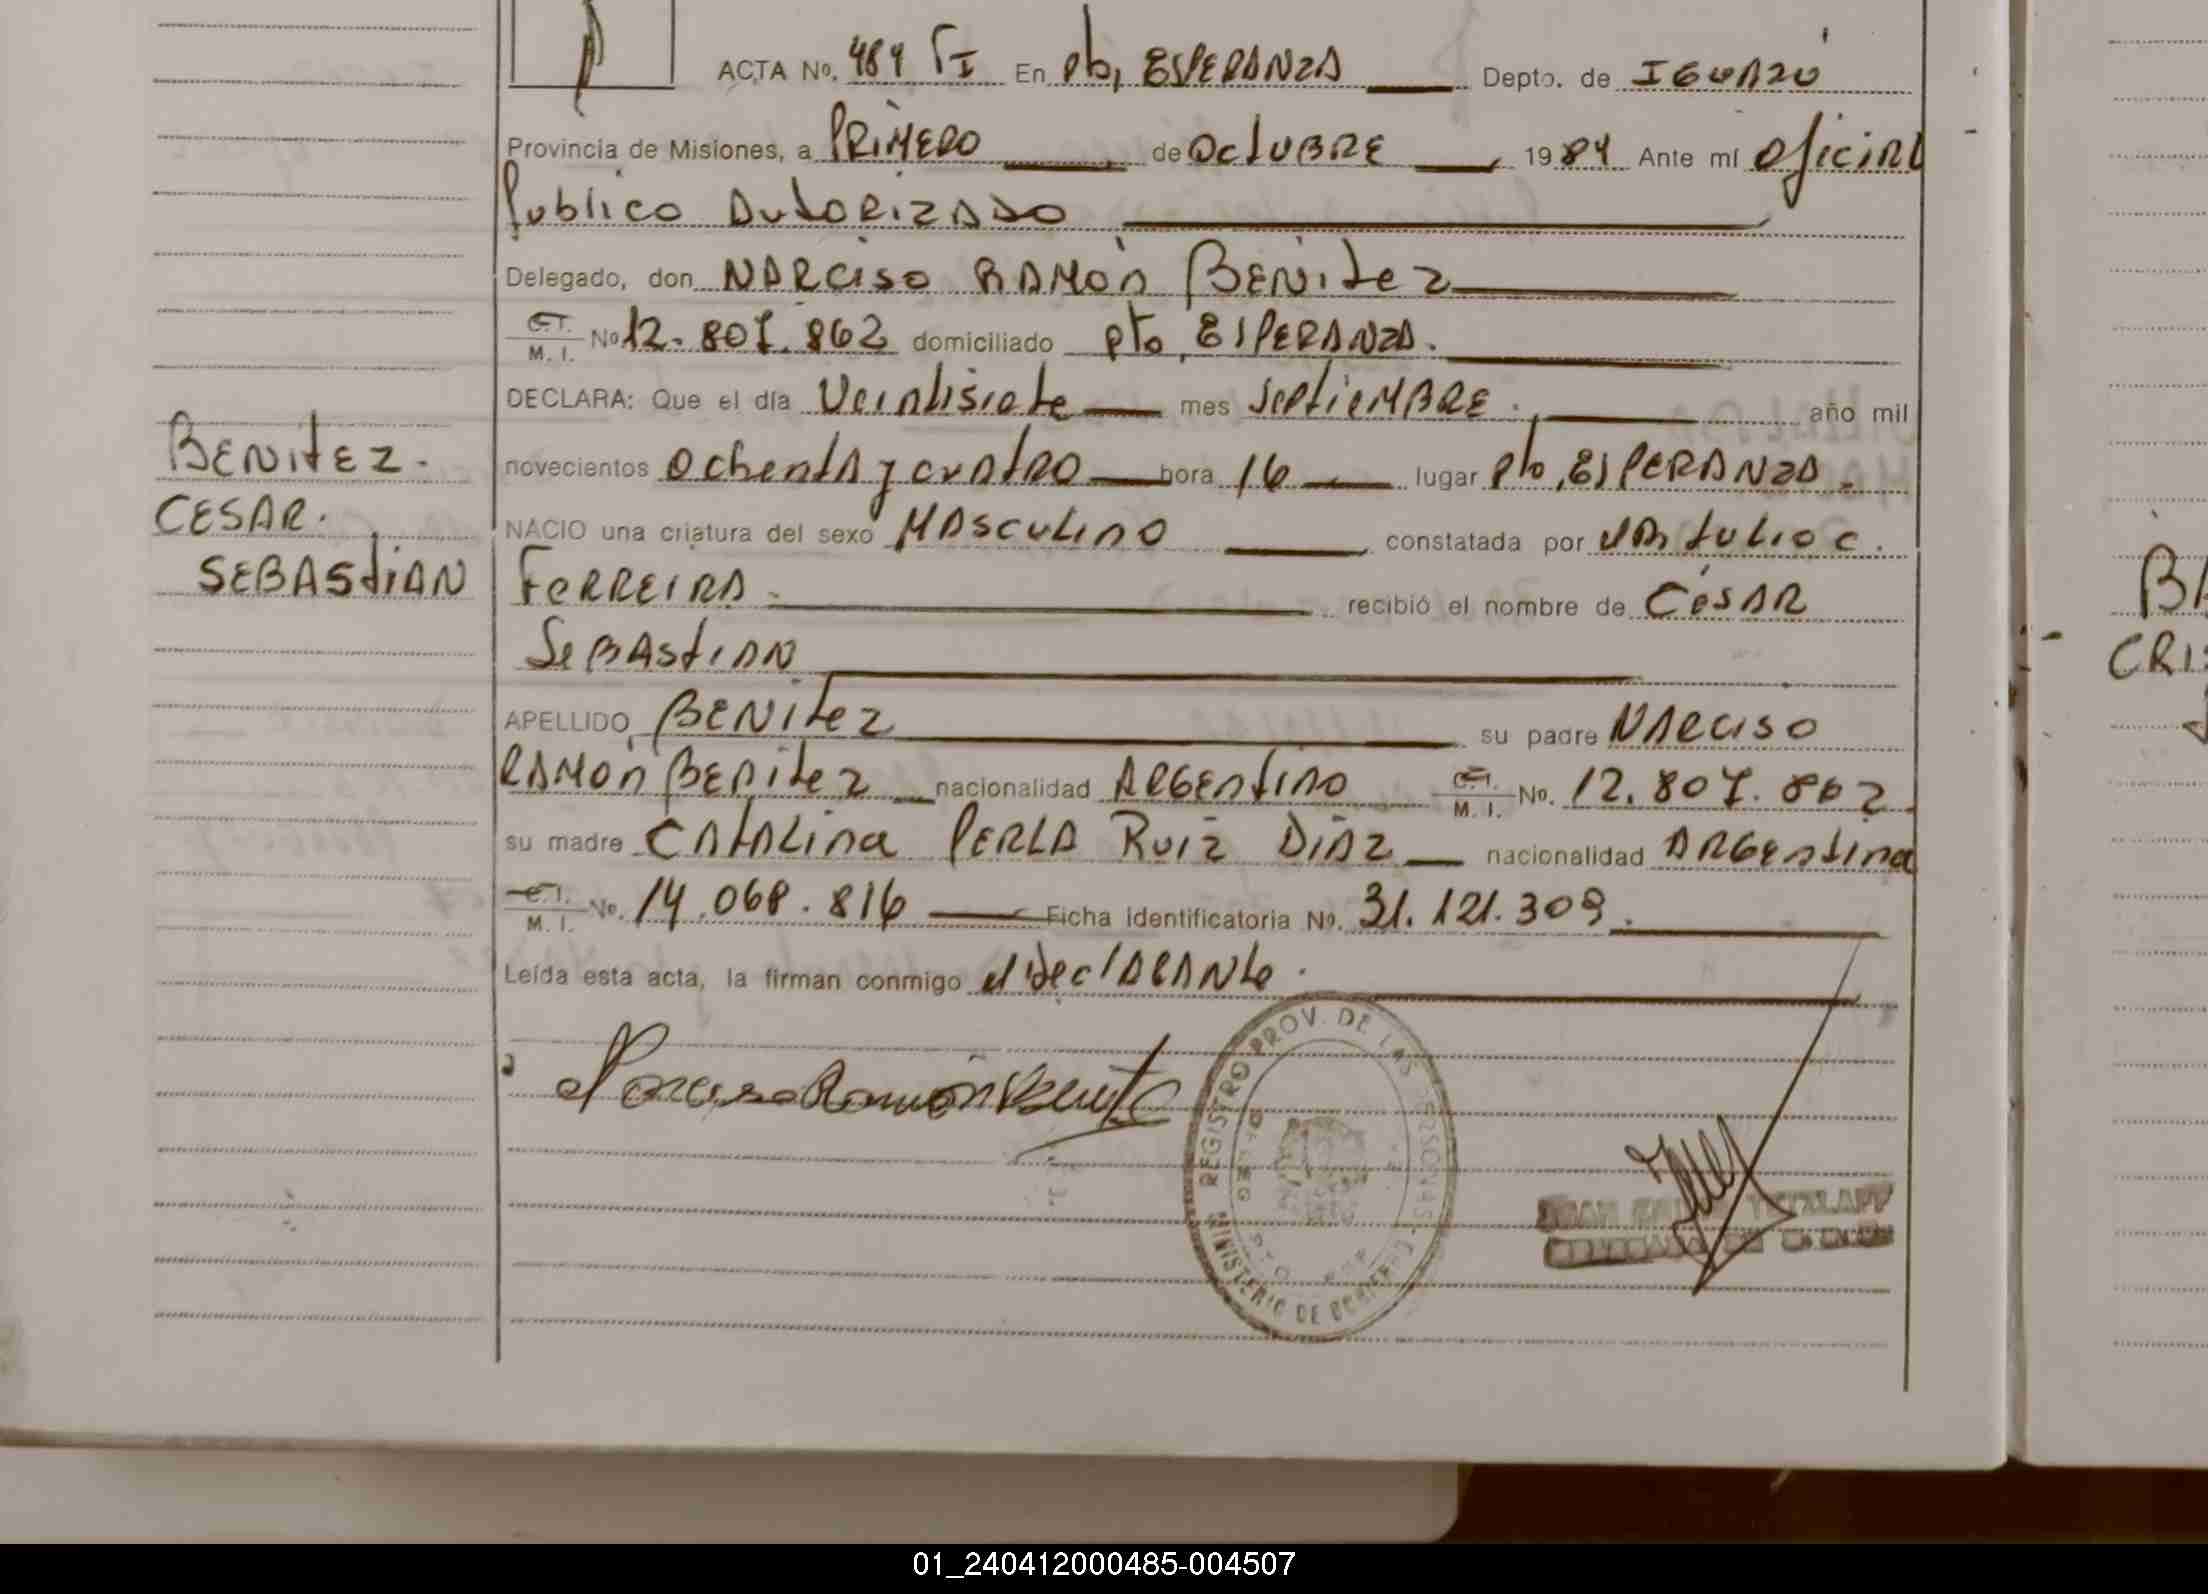 ACTA No. 484 TI En Pto, ESPERANZA Depto. de IGUAZÚ
Provincia de Misiones, a PRIMERO de OCTUBRE 1984 Ante mí Oficial
Publico Autorizado
Delegado, don NARCISO RAMÓN BENITEZ
C.I. M. I. No 12.807.862 domiciliado Pto, ESPERANZA.
DECLARA: Que el día Veintisiete mes SEPTIEMBRE. año mil
novecientos Ochenta y cuatro hora 16 lugar Pto, ESPERANZA.
BENITEZ.
CESAR.
SEBASTIAN
NACIO una criatura del sexo MASCULINO constatada por tulio c.
FERREIRA. recibió el nombre de CÉSAR
SEBASTIAN
APELLIDO BENITEZ su padre NARCISO
RAMÓN BENITEZ nacionalidad ARGENTINO C.I. M. I. No. 12.807.862
su madre CATALINA PERLA RUIZ DIAZ nacionalidad ARGENTINA
C.I. M. I. No. 14.068.816 Ficha identificatoria No. 31.121.309.
Leída esta acta, la firman conmigo el declarante.
Narciso Ramón Benitez
REGISTRO PROV. DE LAS PERSONAS
MINISTERIO DE GOBIERNO
BA
01_240412000485-004507